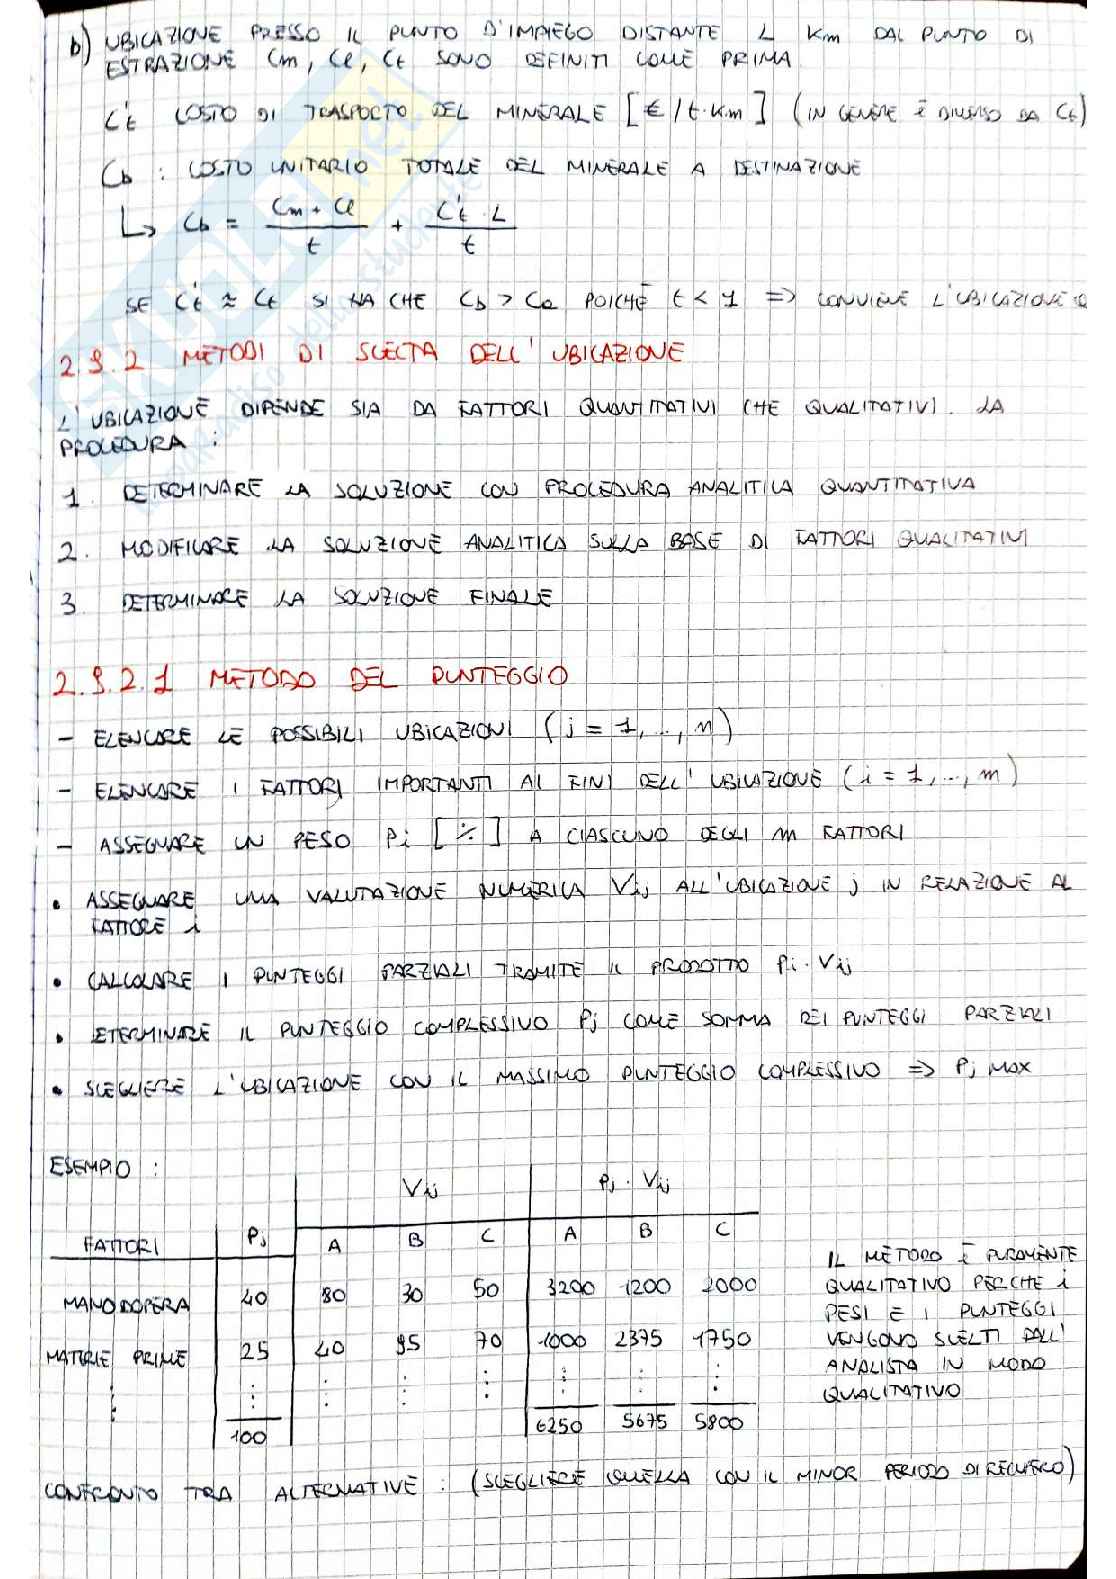 b) UBICAZIONE PRESSO IL PUNTO D'IMPIEGO DISTANTE L Km DAL PUNTO DI
ESTRAZIONE Cm, Ce, Ct SONO DEFINITI COME PRIMA
C't COSTO DI TRASPORTO DEL MINERALE [€/t·Km] (IN GENERE È DIVERSO DA Ct)
Cb : COSTO UNITARIO TOTALE DEL MINERALE A DESTINAZIONE
↳ Cb = (Cm + Ce)/t + (C't · L)/t
SE C't ≈ Ct SI HA CHE Cb > Ca POICHÈ t < 1 => CONVIENE L'UBICAZIONE a
2.9.2 METODI DI SCELTA DELL'UBICAZIONE
L'UBICAZIONE DIPENDE SIA DA FATTORI QUANTITATIVI CHE QUALITATIVI. LA
PROCEDURA :
1. DETERMINARE LA SOLUZIONE CON PROCEDURA ANALITICA QUANTITATIVA
2. MODIFICARE LA SOLUZIONE ANALITICA SULLA BASE DI FATTORI QUALITATIVI
3. DETERMINARE LA SOLUZIONE FINALE
2.9.2.1 METODO DEL PUNTEGGIO
- ELENCARE LE POSSIBILI UBICAZIONI (j = 1, .., n)
- ELENCARE I FATTORI IMPORTANTI AI FINI DELL'UBICAZIONE (i = 1, .., m)
- ASSEGNARE UN PESO Pi [%] A CIASCUNO DEGLI m FATTORI
• ASSEGNARE UNA VALUTAZIONE NUMERICA Vij ALL'UBICAZIONE j IN RELAZIONE AL
FATTORE i
• CALCOLARE I PUNTEGGI PARZIALI TRAMITE IL PRODOTTO Pi · Vij
• ETERMINARE IL PUNTEGGIO COMPLESSIVO Pj COME SOMMA DEI PUNTEGGI PARZIALI
• SCEGLIERE L'UBICAZIONE CON IL MASSIMO PUNTEGGIO COMPLESSIVO => Pj MAX
ESEMPIO :
Vij Pj · Vij
FATTORI Pj A B C A B C
MANODOPERA 40 80 30 50 3200 1200 2000
MATERIE PRIME 25 40 95 70 1000 2375 1750
100 6250 5675 5800
IL METODO È PURAMENTE
QUALITATIVO PERCHE i
PESI E I PUNTEGGI
VENGONO SCELTI DALL'
ANALISTA IN MODO
QUALITATIVO
CONFRONTO TRA ALTERNATIVE : (SCEGLIERE QUELLA CON IL MINOR PERIODO DI RECUPERO)